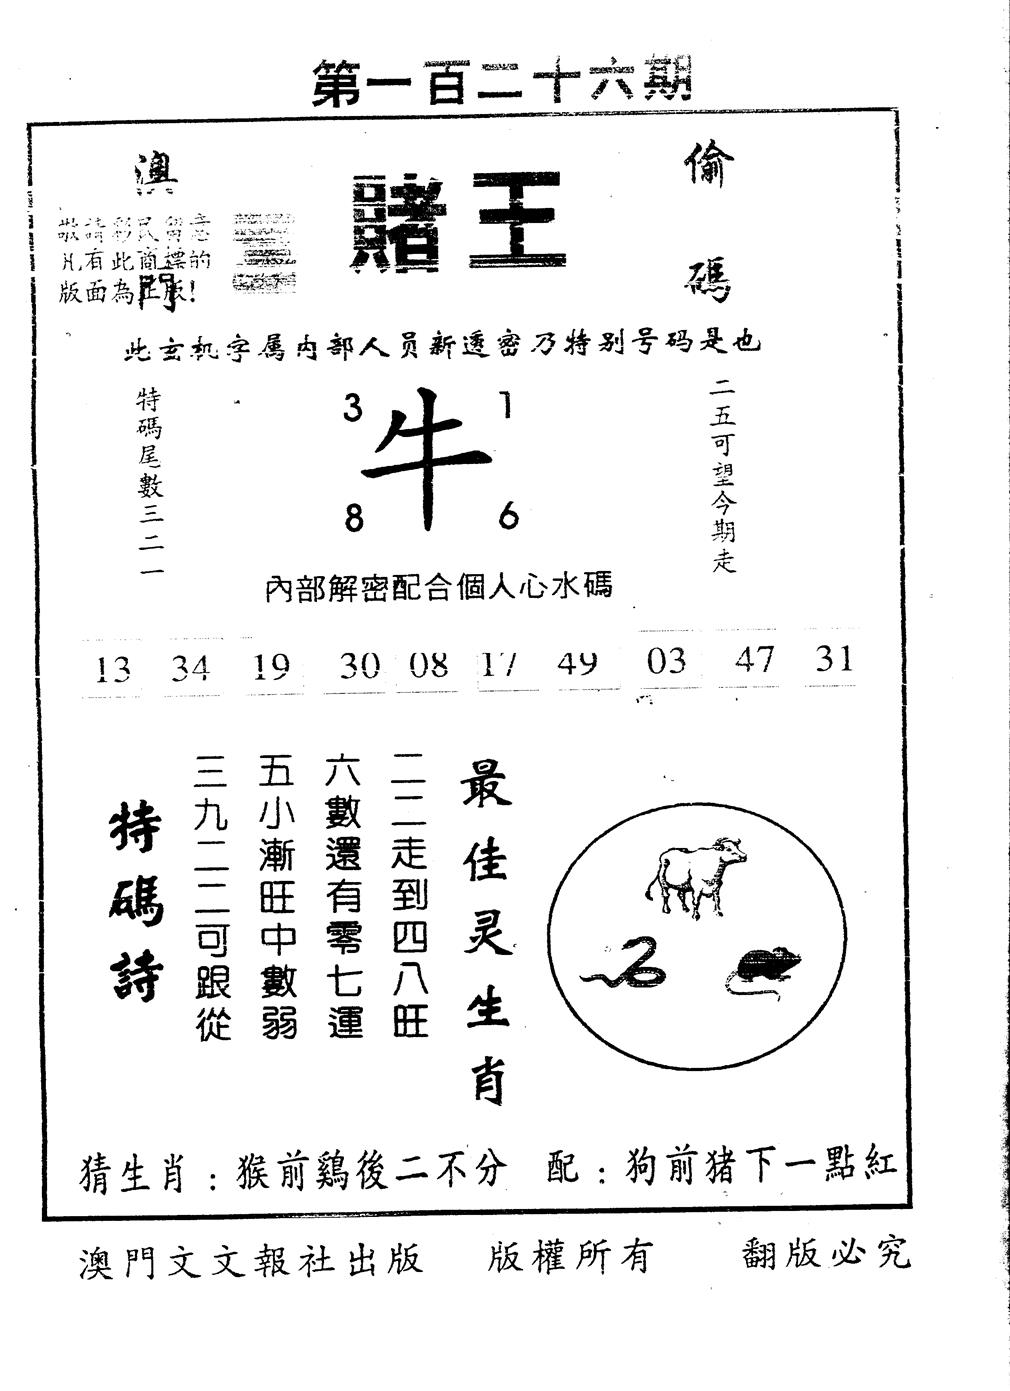 第一百二十六期
澳門
賭王
偷碼
敬請彩民留意
凡有此商標的
版面為正版!
此玄机字属内部人员新透密乃特别号码是也
特碼尾數三二一
3 1
牛
8 6
二五可望今期走
內部解密配合個人心水碼
13 34 19 30 08 17 49 03 47 31
特碼詩
三九二二可跟從
五小漸旺中數弱
六數還有零七運
二二走到四八旺
最佳灵生肖
猜生肖:猴前鷄後二不分 配:狗前猪下一點紅
澳門文文報社出版 版權所有 翻版必究